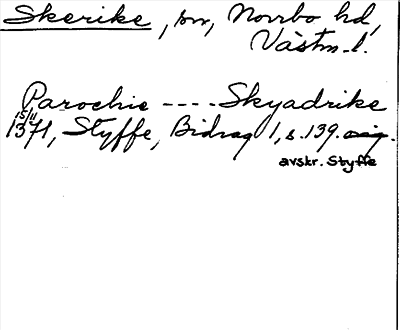 Skerike, sn, Norrbo hd,
Västm. l.
Parochie ---- Skyadrike
15/11
1371, Styffe, Bidrag 1, s. 139.
avskr. Styffe